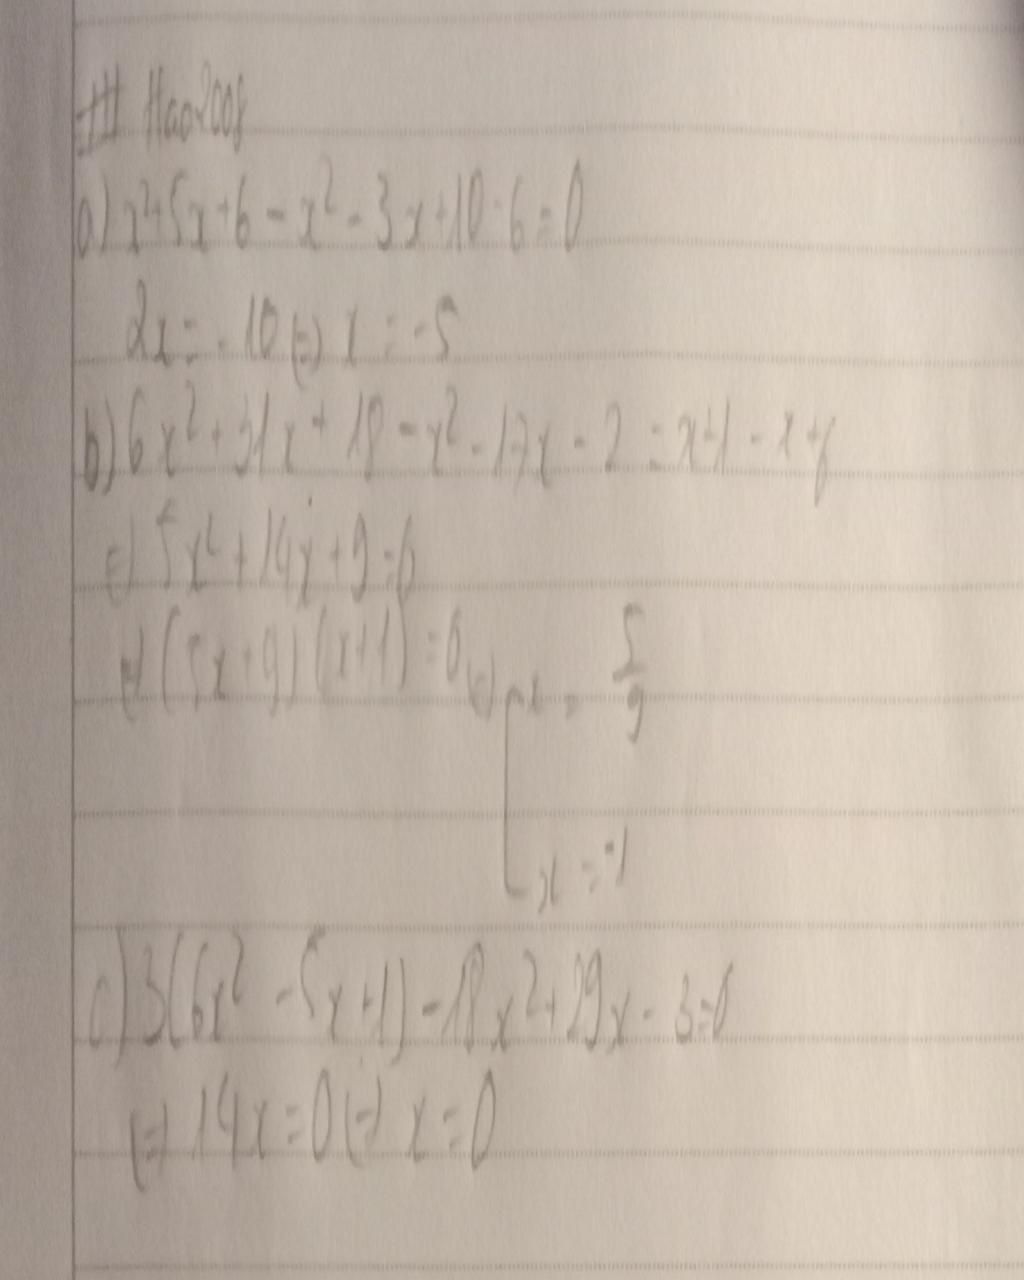 ### Hao2008
a) x²+5x+6-x²-3x+10-6=0
2x=-10(=) x=-5
b) 6x²+31x+18-x²-17x-2=x+1-x+6
(=) 5x²+14x+9=0
(=) (5x+9)(x+1)=0 (=) [x= 5/9
x=-1
c) 3(6x²-5x+1)-18x²+29x-3=0
(=) 14x=0(=) x=0